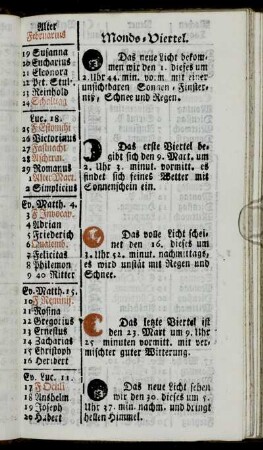 Alter
Februarius
19 Susanna
20 Eucharius
21 Eleonora
22 Pet. Stul.
23 Reinhold
24 Schalttag
Luc. 18.
25 F Estomihi
26 Victorinus
27 Fasnacht
28 Ascherm.
29 Romanus
Alter Mart.
2 Simplicius
Ev. Matth. 4.
3 F Invocav.
4 Adrian
5 Friederich
Quatemb.
7 Felicitas
8 Philemon
9 40 Ritter
Ev. Matth. 15.
10 F Reminis.
11 Rosina
12 Gregorius
13 Ernestus
14 Zacharias
15 Christoph
16 Heribert
Ev. Luc. 11.
17 F Oculi
18 Anshelm
19 Joseph
20 Hubert
Monds-Viertel.
Das neue Licht bekom-
men wir den 1. dieses um
2. Uhr 44. min. vorm. mit einer
unsichtbaren Sonnen-Finster-
niß, Schnee und Regen.
Das erste Viertel be-
gibt sich den 9. Mart. um
2. Uhr 3. minut. vormitt. es
findet sich feines Wetter mit
Sonnenschein ein.
Das volle Licht schei-
net den 16. dieses um
3. Uhr 52. minut. nachmittags,
es wird unstät mit Regen und
Schnee.
Das letzte Viertel ist
den 23. Mart um 9. Uhr
25 minuten vormitt. mit ver-
mischter guter Witterung.
Das neue Licht sehen
wir den 30. dieses um 5.
Uhr 37. min. nachm. und bringt
hellen Himmel.